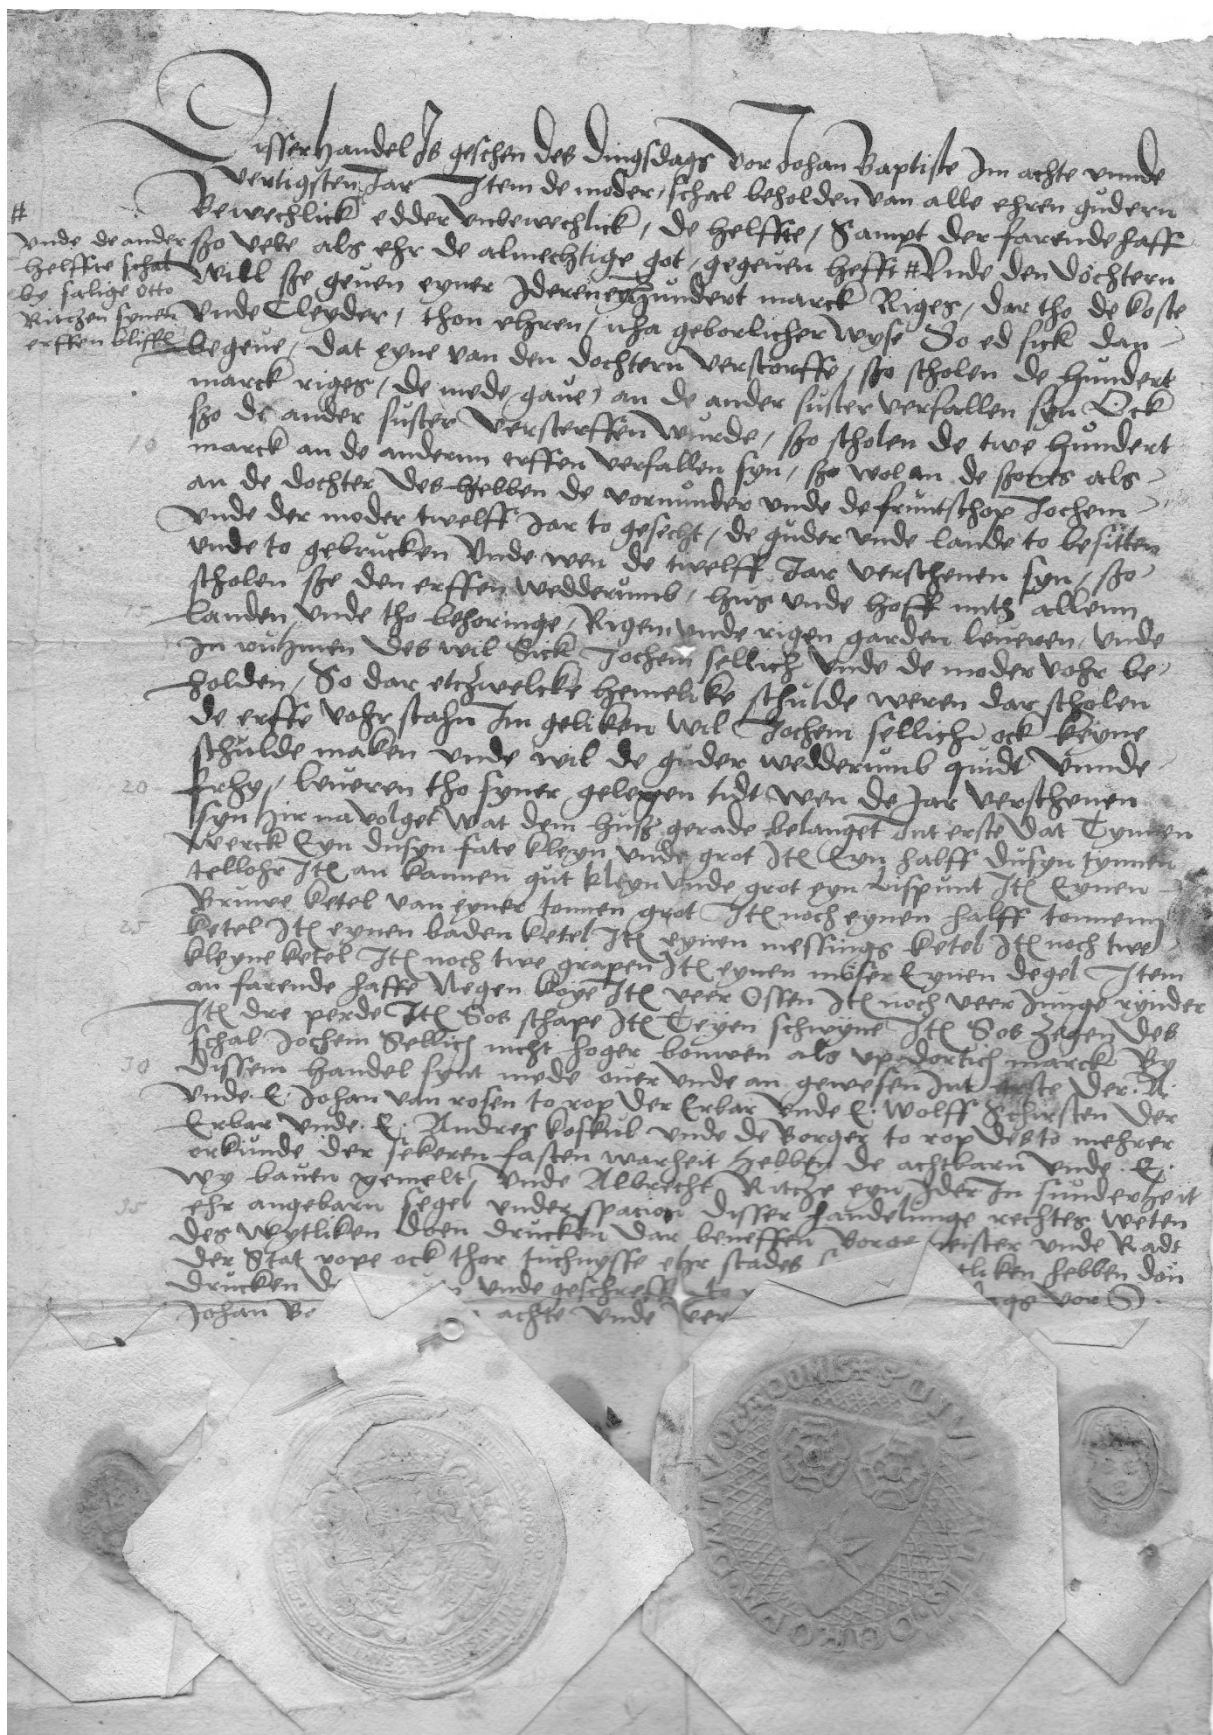 Disser handel Is geschen des dingsdags vor Johan Baptiste Im achte vnnde
vertigsten Jar Item de moder, schal beholden van alle ehren gudern
Bewechlick edder vnbewechlick, de helffte, Sampt der farende haff
#
vnde de ander
helffte schal
by salige Otto
Ritczen synen
erffen bliffen
szo vele als ehr de almechtige got, gegeuen hefft # Vnde den dochtern
will sze geuen eyner Idereney hundert marck Riges, dar tho de koste
vnde Cleyder, thon ehren, nha geborlicher wyse So ed sick dan
begeue, dat eyne van den dochtern verstorffe, szo scholen de hundert
marck riges, de mede gaue, an de ander suster verfallen syn Ock
szo de ander suster versterffen wurde, szo scholen de twe hundert
10
marck an de andernn erffen verfallen syn, szo wol an de szones als
an de dochter Des hebben de vormunder vnde de fruntschop Jochem
vnde der moder twelff Jar to gesecht, de guder vnde lande to besitten
vnde to gebrucken Vnde wen de twelff Jar verschenen syn, szo
scholen sze den erffen wedderumb, hus vnde hoff mitz allenn
15
landen, vnde tho behoringe, Rigen vnde rigen garden leueren, vnde
In ruhmen Des wil Sick Jochem sellich vnde de moder vohr be
holden, So dar etczwelcke hemelike schulde weren dar scholen
de erffe vohr stahn Im geliken wil Jochem sellich ock keyne
schulde maken vnde wil de guder wedderumb quidt vnnde
20
frhy, leueren tho syner gelegen tidt wen de Jar verschenen
syn Hir na volget wat dem husz gerade belanget Int erste dat Tynnen
werck Eyn dusyn fate kleyn vnde grot Itē Eyn halff dusyn tynnen
tellohr Itē an kannen gut kleyn vnde grot eyn lispunt Itē Eynen
Bruwe ketel van eyner tonnen grot Itē noch eynen halff tonnenn
25
ketel Itē eynen baden ketel Itē eynen messings ketel Itē noch twe
kleyne ketel Itē noch twe grapen Itē eynen möser Eynen degel Item
an farende haffe Negen koye Itē veer Ossen Itē noch veer Junge rynder
Itē dre perde Itē Sos schape Itē Teyen schwyne Itē Sos Zegen Des
schal Jochem Sellich nicht hoger bouwen als vp dortich marck By
30
dissem handel synt mede ouer vnde an gewesen Int erste Der. A.
vnde. E. Johan van rosen to rop der Erbar vnde E. Wolff Schirsten der
Erbar vnde. E. Andres koskul vnde de Borger to rop Des to mehrer
orkunde der sekeren fasten warheit Hebben de achtbarn vnde. E.
wy bauen gemelt, vnde Albrecht Ritcze eyn Ider In sunderheit
35
ehr angebarn segel vnder spacion disser handelunge rechtes weten
des wytliken doen drucken dar beneffen Borgermeister vnde Radt
der Stat rope ock thor tuchnysse ehr stades hebben don
drucken vnde geschreff to vor S.
Johan Be achte vnde ver